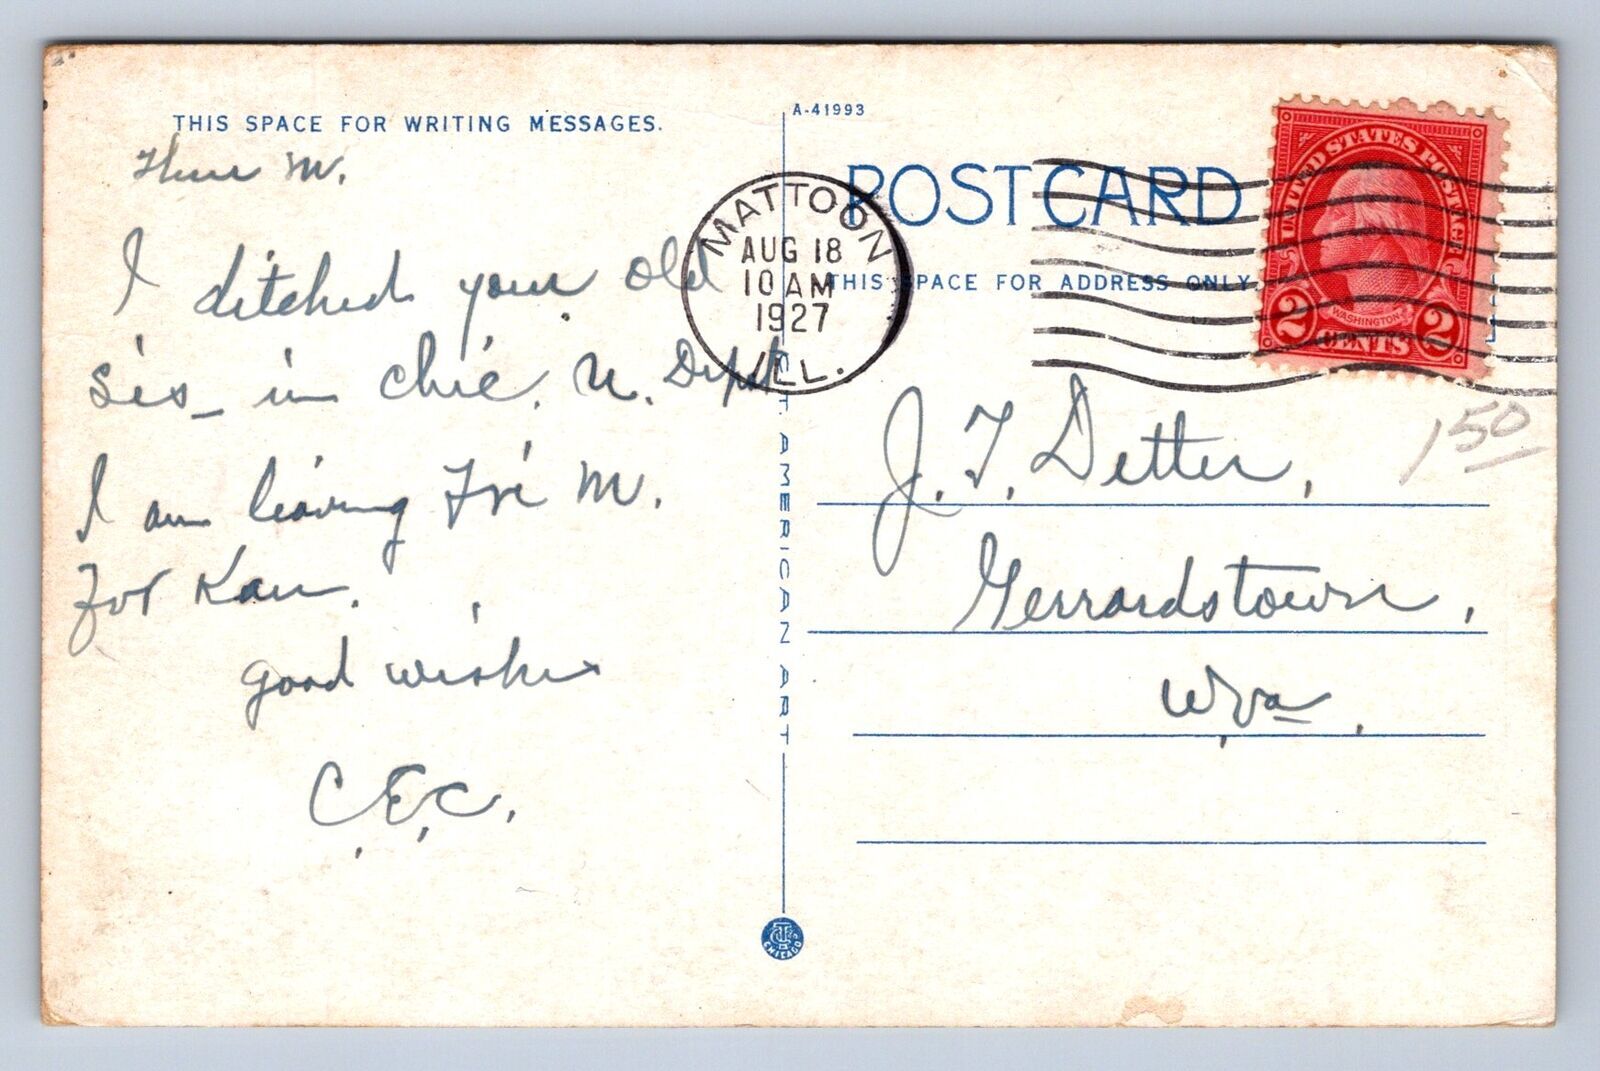 THIS SPACE FOR WRITING MESSAGES.
Thur M.
I ditched your old
Sis - in Chic. U. Dept
I am leaving Fri M.
for Kan.
good wishes
C.E.C.
A-41993
POST CARD
THIS SPACE FOR ADDRESS ONLY
MATTOON
AUG 18
10 AM
1927
ILL.
UNITED STATES POSTAGE
WASHINGTON
2 CENTS 2
1 50
J. T. Detter,
Gerrardstown,
W Va.
C.T. AMERICAN ART
CHICAGO